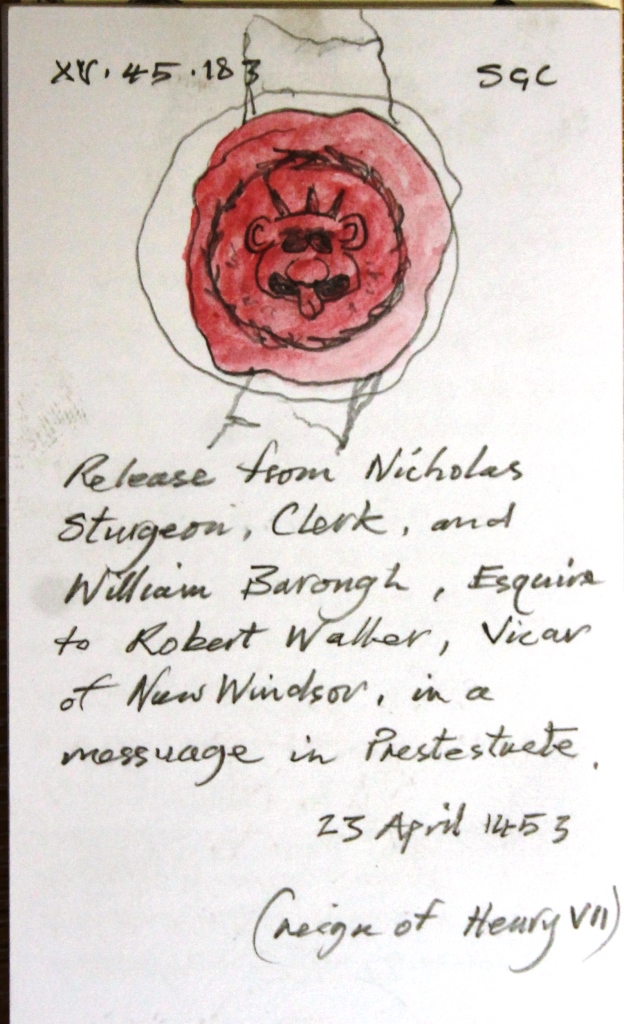 XV. 45. 183 SGC
Release from Nicholas
Sturgeon, Clerk, and
William Barough, Esquire
to Robert Waller, Vicar
of New Windsor, in a
messuage in Prestestrete.
23 April 1453
(reign of Henry VII)